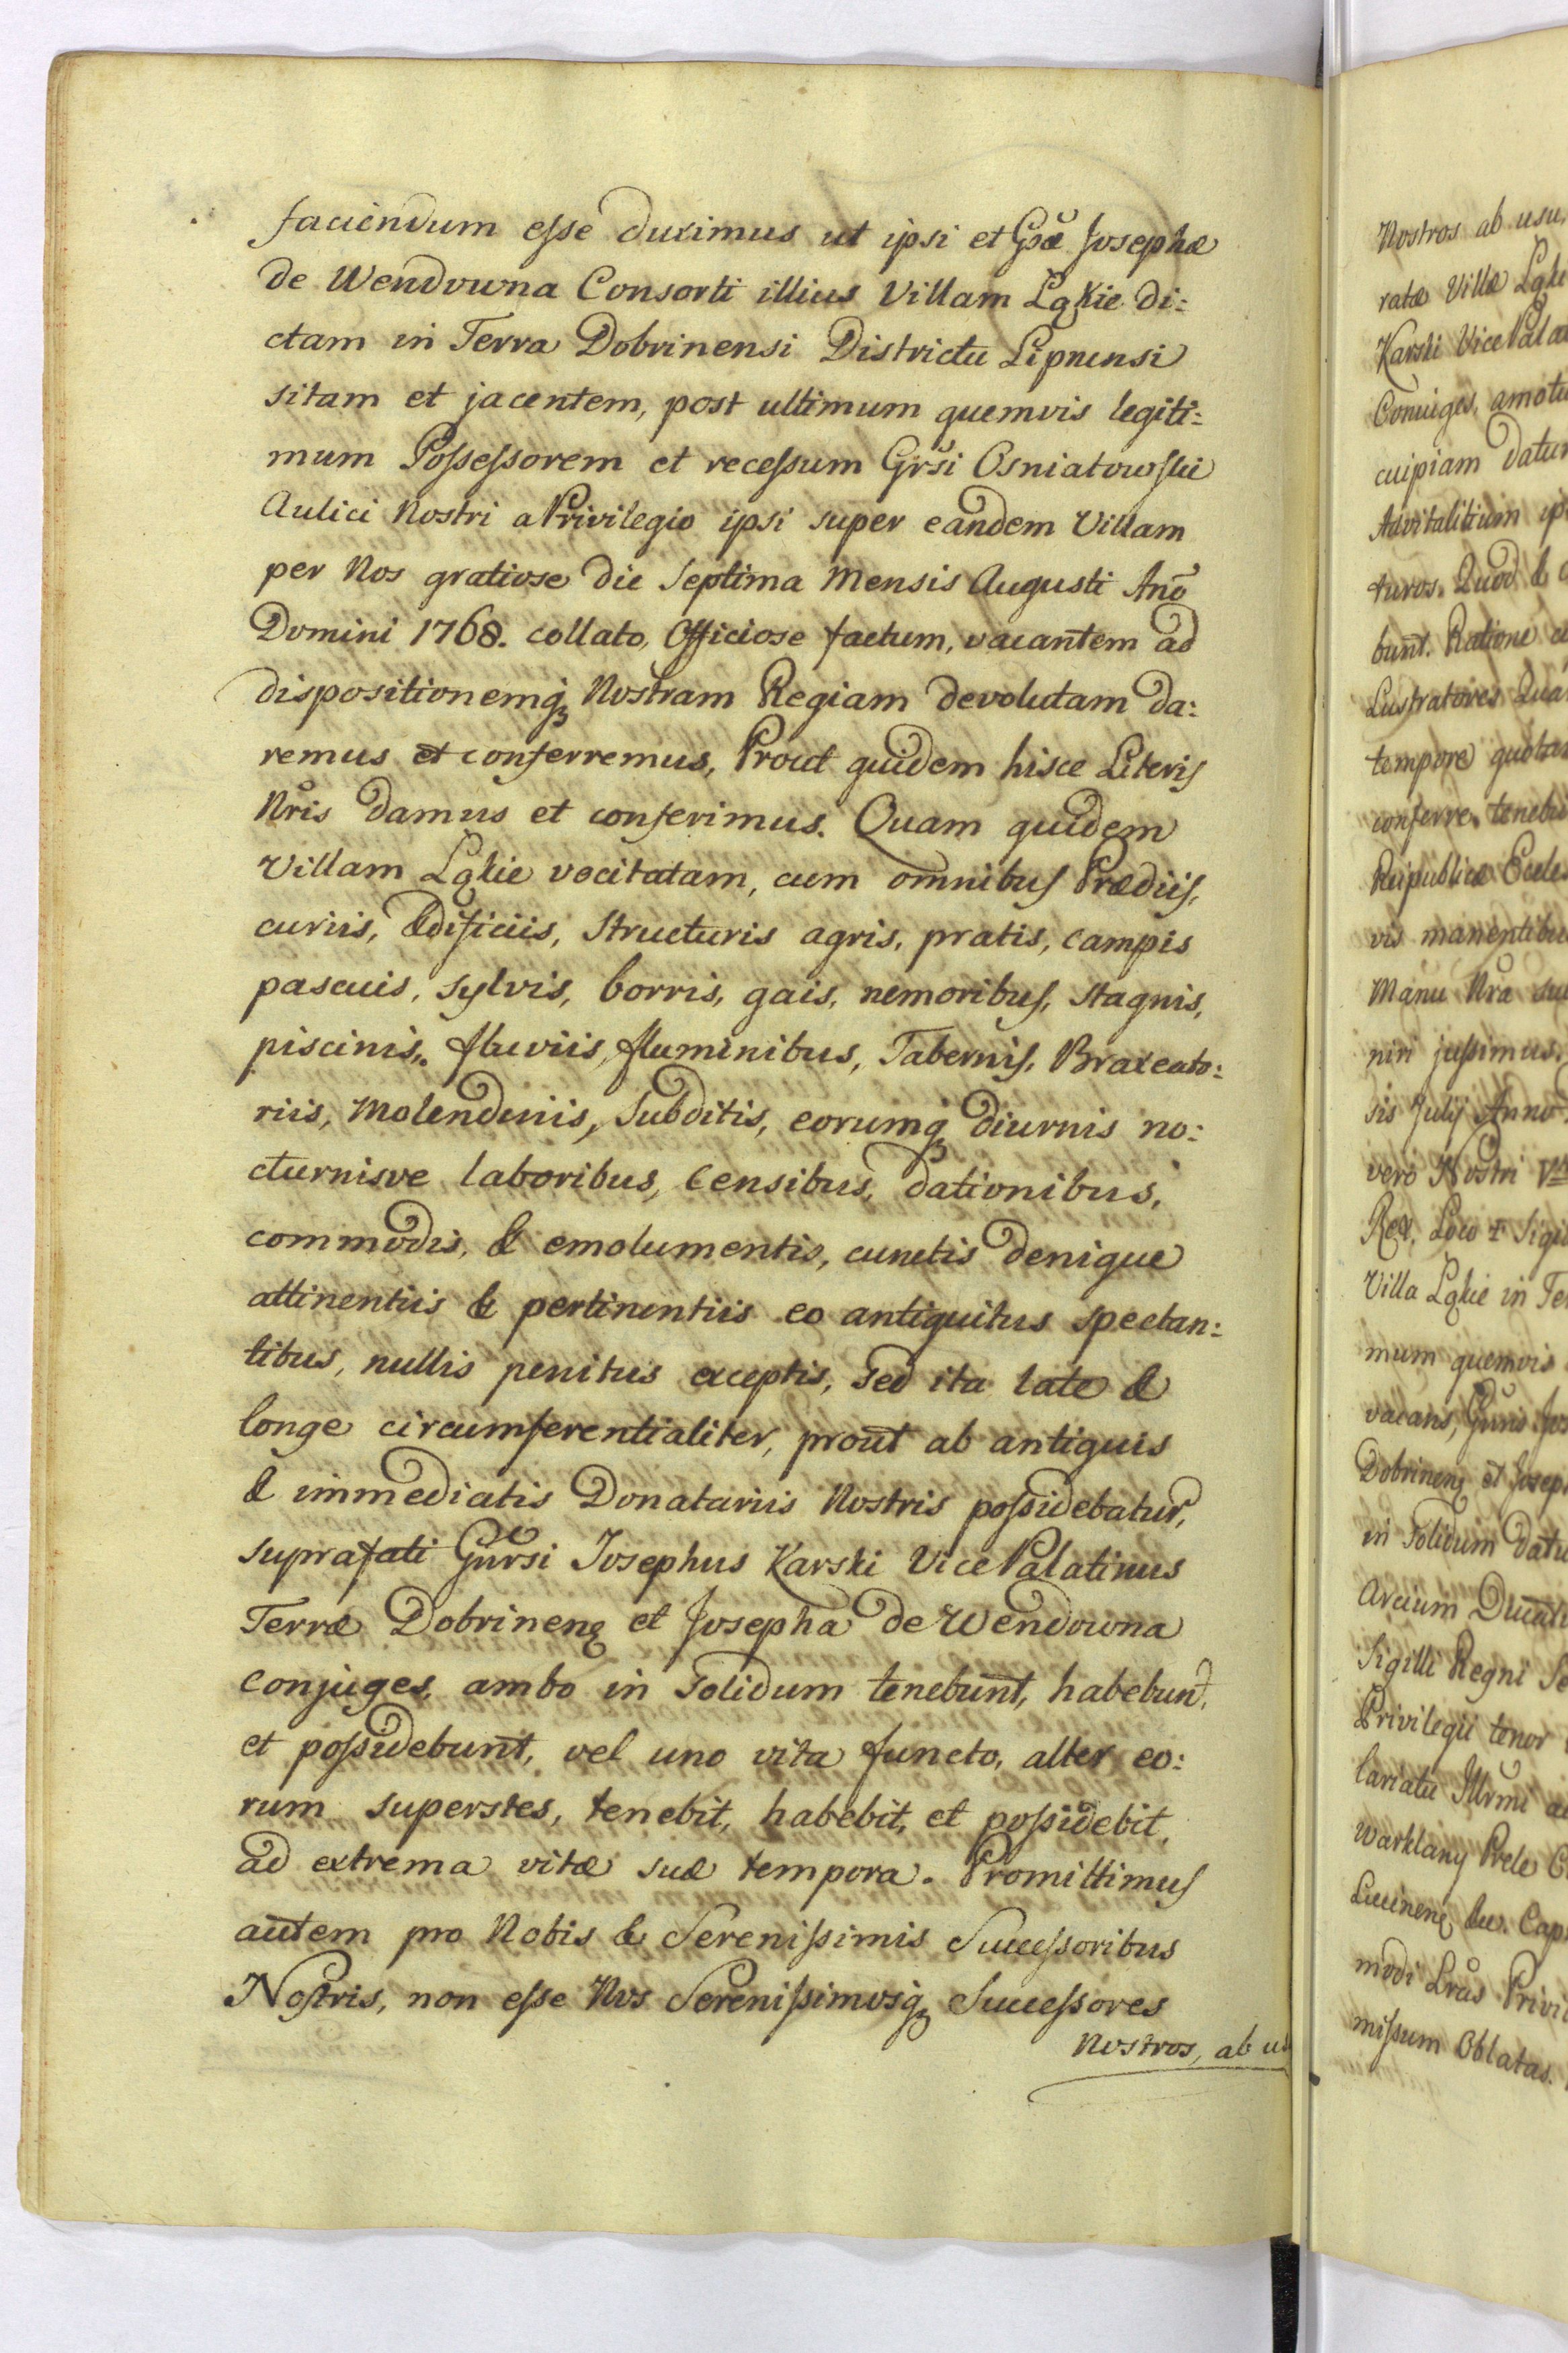 faciendum esse duximus ut ipsi et Gsæ Josephæ
de Wendowna Consorti illius Villam Łąkie di:
ctam in Terra Dobrinensi Districtu Lipnensi
sitam et jacentem, post ultimum quemvis legiti:
mum Possessorem et recessum Grsi Osniatowskii
Aulici Nostri a Privilegio ipsi super eandem Villam
per Nos gratiose die Septima Mensis Augusti Ano
Domini 1768. collato, Officiose factum, vacantem ad
dispositionemq Nostram Regiam devolutam da:
remus et conferremus, Prout quidem hisce Literis
Nris damus et conferimus. Quam quidem
Villam Łąkie vocitatam, cum omnibus Prædiis,
curiis, Ædificiis, Structuris agris, pratis, campis
pascuis, sylvis, borris, gais, nemoribus, stagnis,
piscinis, fluviis, fluminibus, Tabernis, Braxeato:
riis, Molendinis, Subditis, eorumq diurnis no:
cturnisve laboribus, Censibus, dationibus,
commodis, & emolumentis, cunctis denique
attinentiis & pertinentiis eo antiquitus spectan:
tibus, nullis penitus exceptis, sed ita late &
longe circumferentialiter, prout ab antiquis
& immediatis Donatariis Nostris possidebatur,
suprafati Gnrsi Josephus Karski Vice Palatinus
Terræ Dobrinenq et Josepha de Wendowna
Conjuges, ambo in solidum tenebunt, habebunt,
et possidebunt, vel uno vita functo, alter eo:
rum superstes, tenebit, habebit, et possidebit,
ad extrema vitæ suæ tempora. Promittimus
autem pro Nobis & Serenissimis Successoribus
Nostris, non esse Nos Serenissimosq Successores
Nostros, ab us
Nostros ab usu,
ratæ Villæ Łąkie
Karski Vice Pala
Conjuges, amotu
cuipiam datur
Advitalitium ips
turos. Quod &
bunt. Ratione
Lustratores Qua
tempore quotan
conferre tenebu
Reipublicæ Eccles
vis manentibus
Manu Nra su
niri jussimus.
sis Julij Anno
vero Nostri
Rex, Loco Sigi
Villa Łąkie in Ter
mum quemvis
vacans, Jos
Dobrinenq et Joseph
in solidum datu
arcium
Sigilli Regni Se
Privilegii tenor
lariatu Illrmi
Warklany
Cap
modi Lras Privil
missum Oblatas.